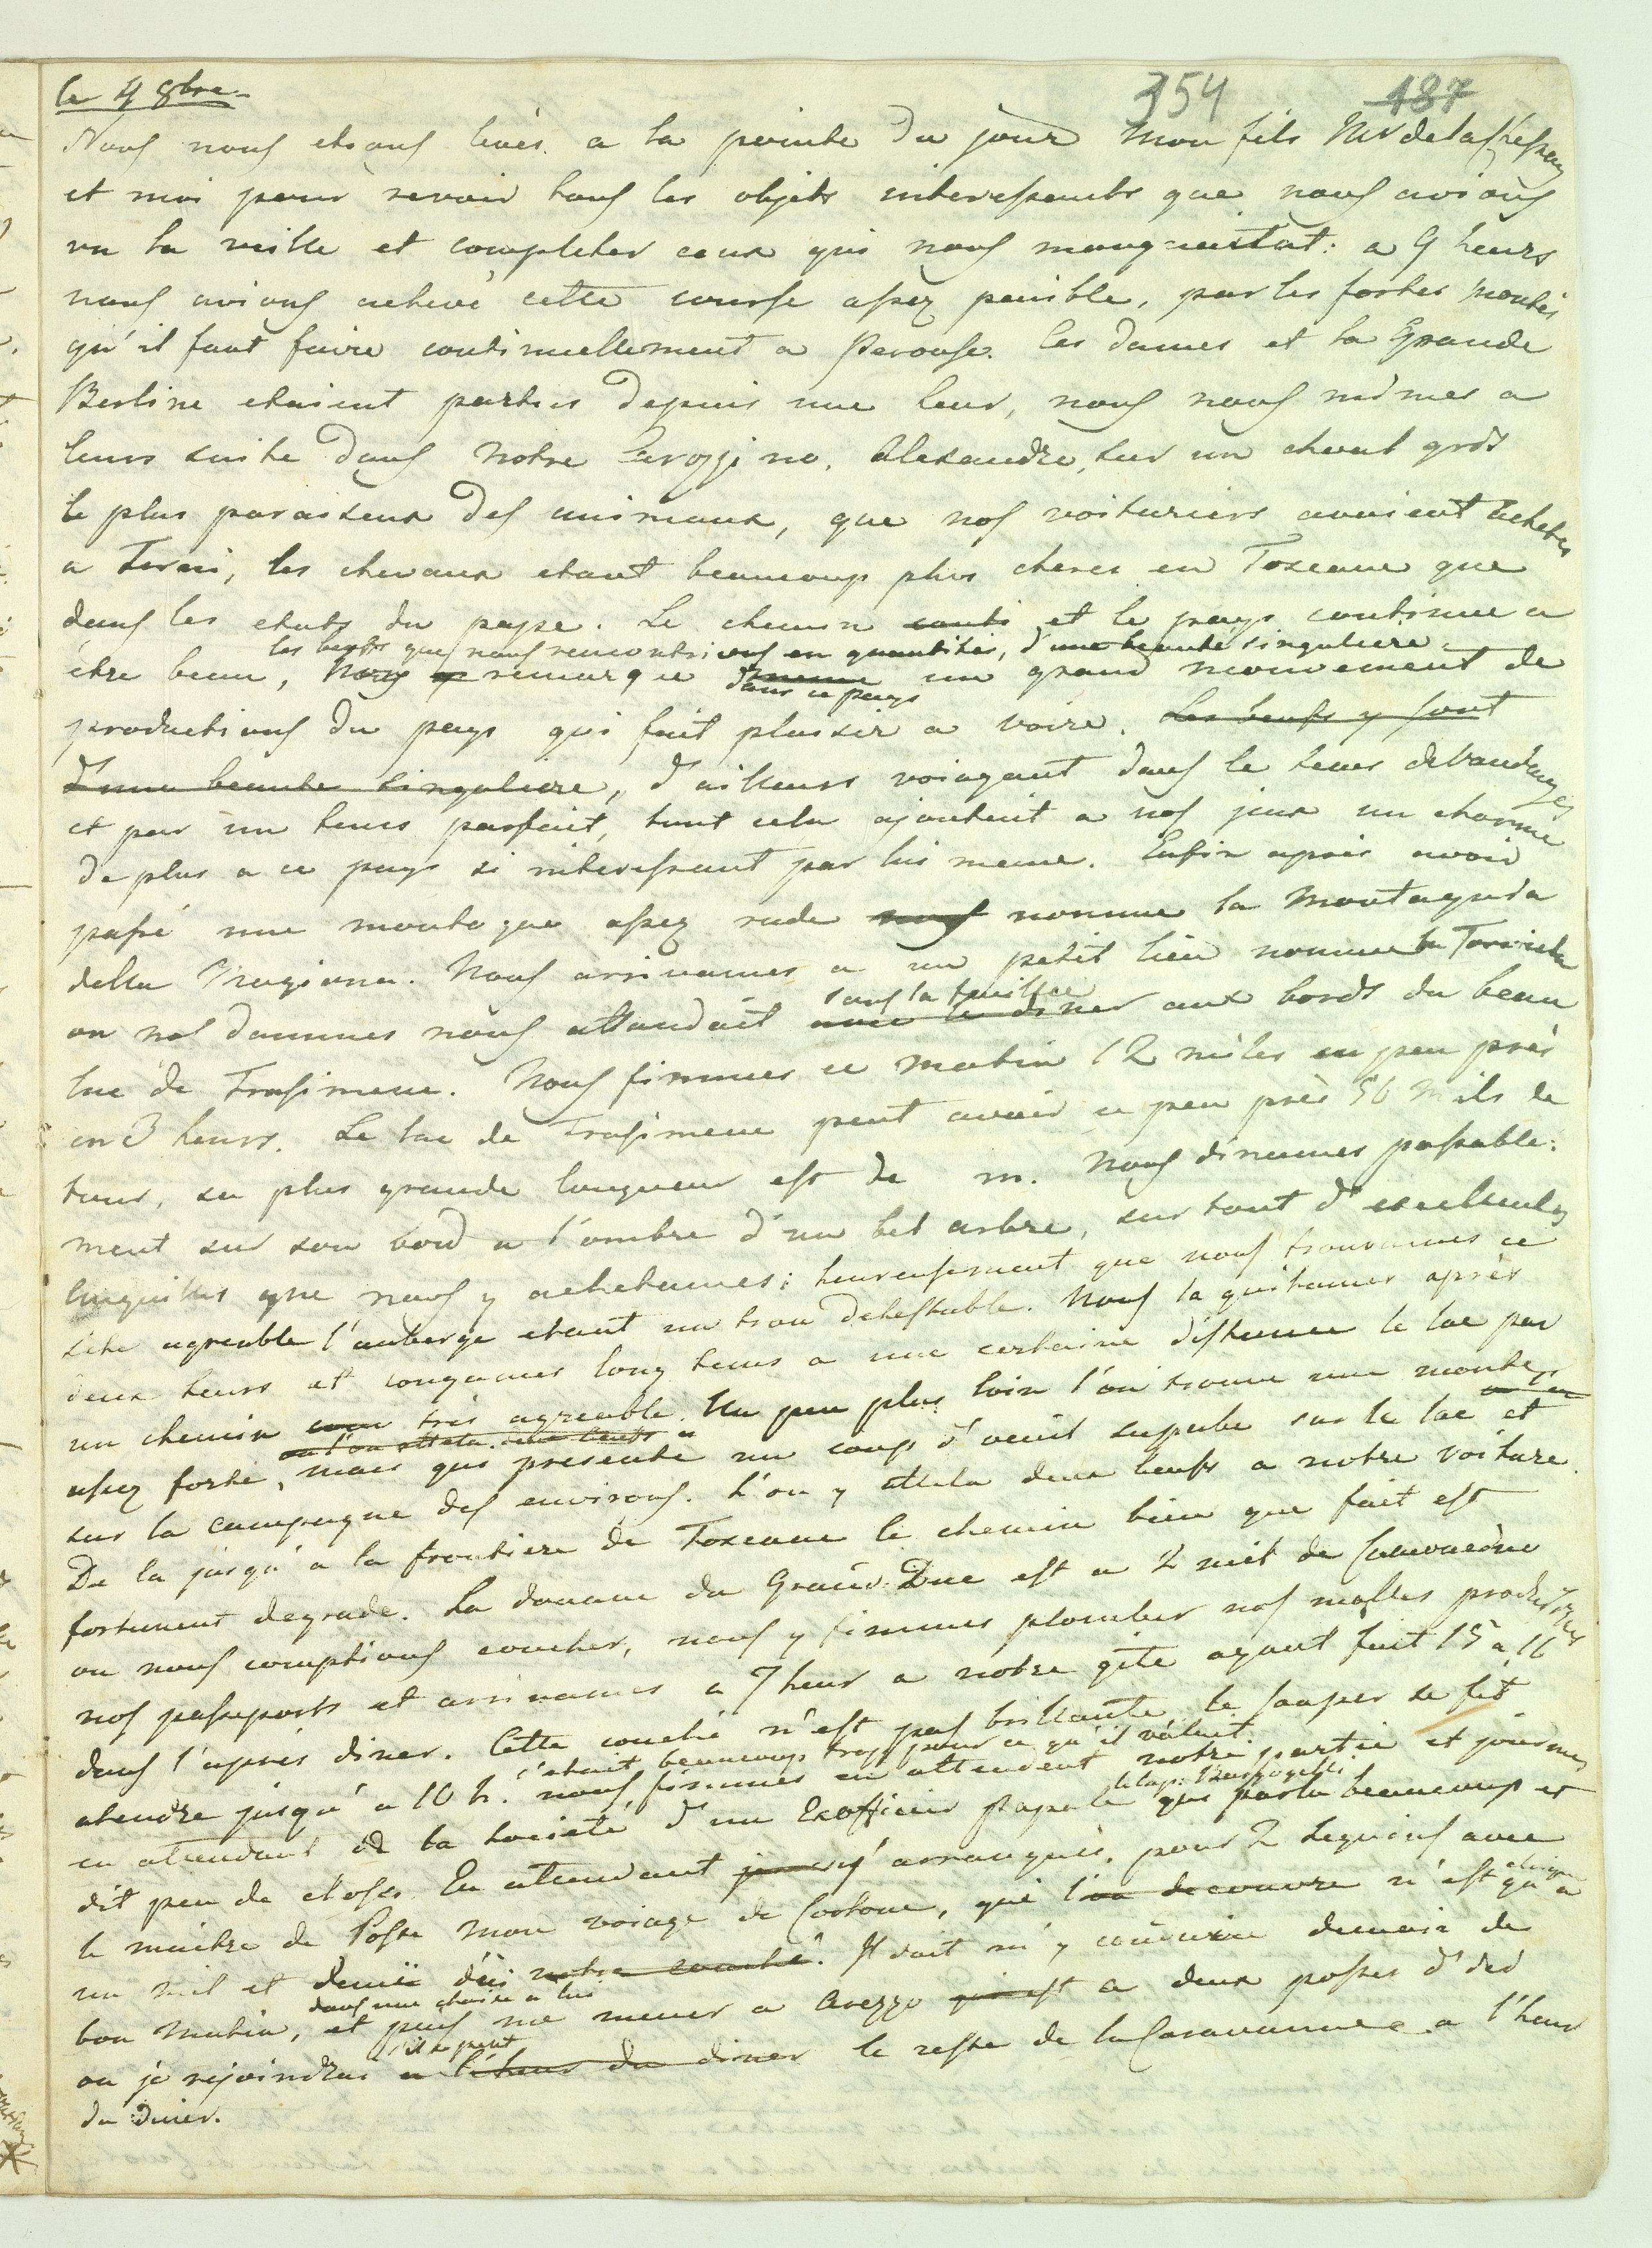 354 487
le 4 8bre.
Nous nous etions levés a la pointe du jour mon fils Mr de la
et moi pour revoir tous les objets interessants que nous avions
vu la veille et completer ceux qui nous manquaitat: a 9 heurs
nous avions achevé cette course assez penible, par les fortes montés
qu'il faut faire continuellement a Perouse. les dames et la Grande
Berline etaient parties depuis une heur, nous nous mimes a
leurs suite dans notre Alexandre, sur un cheval gris
le plus paraiseux des animaux, que nos voituriers avaient achetés
a Terni, les chevaux etant beaucoup plus cheres en Toscane que
dans les etats du pape. Le chemin conti et le pays continue a
les beufs que nous rencontrions en quantités, d'une beauté singuliere.
être beau, remarque un grand mouvement de
dans ce pays
productions du pays qui fait plaisir a voire. Les beufs y sont
d'une beaute singuliere, d'ailleurs voiagant dans le tems de vendanges
et par un tems parfait, tout cela ajoutait a nos jeux un charme
de plus a ce pays si interessant par lui meme. Enfin après avoir
passé une montagne assez rude nous nomme la Montagnia
della Magiona. Nous arrivames a un petit lieu nomme la Torricella
sous la feuillee
ou nos dammes nous attandait avec le diner aux bords du beau
lac de Trasimene. Nous fimmes ce matin 12 miles en peu près
en 3 heurs. Le lac de Trasimene peut avoir a peu près 36 Mils de
tour, sa plus grande longueur est de m. Nous dinames passable:
ment sur son bord a l'ombre d'un bel arbre, sur tout d'excellentes
anguilles que nous y achetames; heureusement que nous trouvames ce
site agreable l'auberge etant un trou detestable. Nous la quittames après
deux heurs et longames long tems a une certaine distance le lac par
un chemin très agreable. Un peu plus loin l'on trouve une monte
ou l'on attela deux beufs
assez forte, mais qui presente un coup d'oeuil superbe sur le lac et
sur la campagne des environs. L'on y attela deux beufs a notre voiture.
De la jusqu'a la frontiere de Toscane le chemin bien que fait est
fortement degrade. La douane du Grand: Duc est a 2 mil de
ou nous comptions coucher, nous y fimmes plomber nos malles produisimes
nos passeports et arrivames a 7 heur a notre gite ayant fait 15 a 16
dans l'après diner. Cette couché n'est pas brillante le souper se fit
c'etait beaucoup trop pour ce qu'il valait.
atendre jusqu'a 10 h. nous fimmes en attendent notre partie et jouimes
en attendant de la société d'un Exofficier Papale qui parla beaucoup et
dit peu de choses. En attendant j'arrangeais pour 2 Sequins avec
le maitre de Poste mon voiage de Cortone, qui l'on decouvre n'est eloigné qu'a
un mil et demie d'ici notre couché. Il doit m'y conduire demain de
dans une chaise a lui
bon matin, et puis me mener a Arezzo qui est a deux postes d'ici
s'il se peut
ou je rejoindrai a l'heur du diner le reste de la Caravanne a l'heur
du diner.